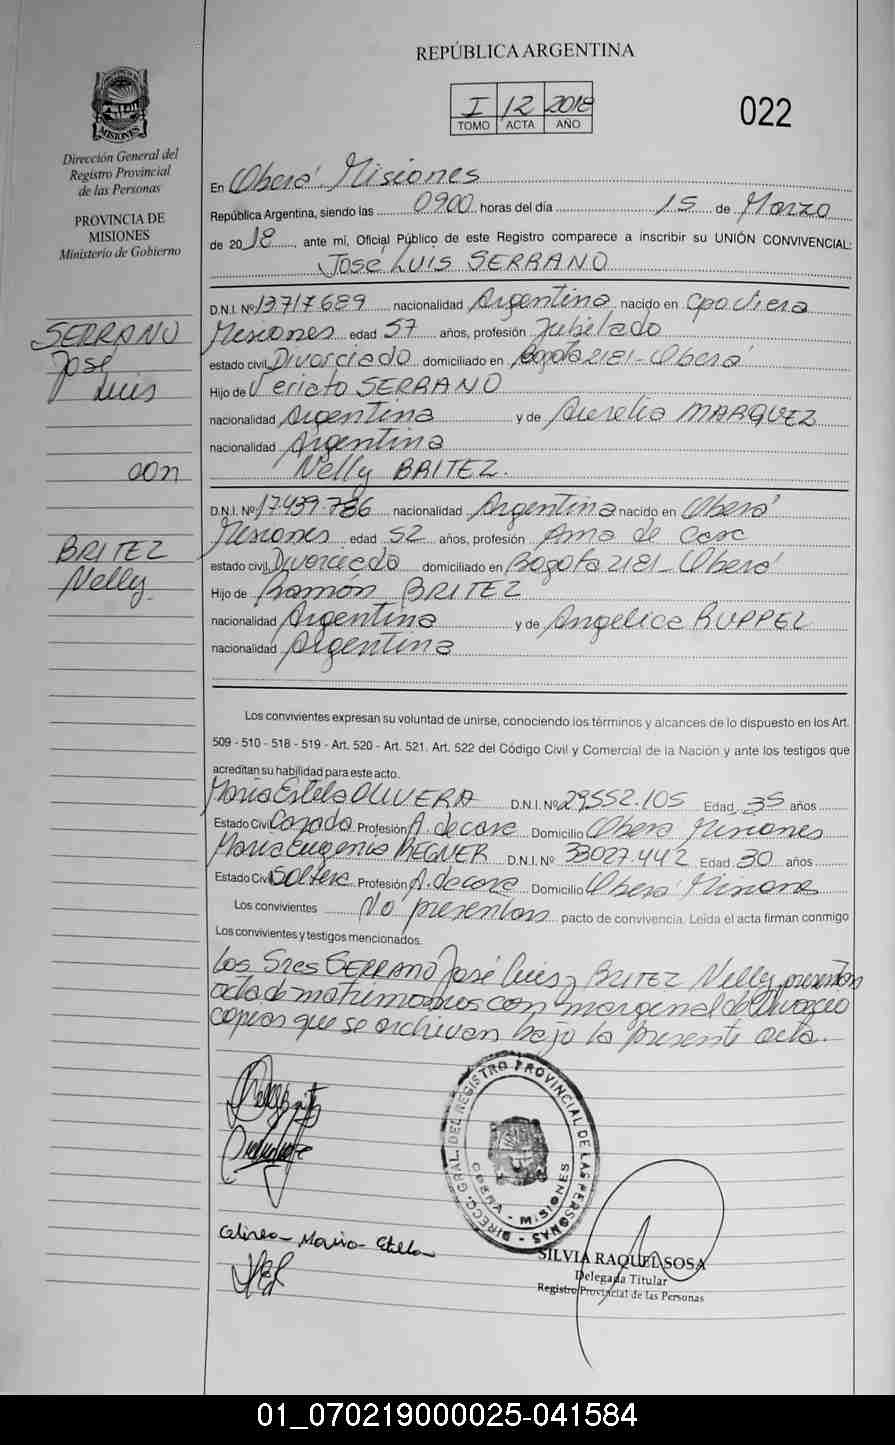 REPÚBLICA ARGENTINA
I 12 2018
TOMO ACTA AÑO
022
MISIONES
Dirección General del
Registro Provincial
de las Personas
PROVINCIA DE
MISIONES
Ministerio de Gobierno
SERRANO
José
Luis
con
BRITEZ
Nelly
En Oberá Misiones
República Argentina, siendo las 0900 horas del día 15 de Marzo
de 2018, ante mi, Oficial Público de este Registro comparece a inscribir su UNIÓN CONVIVENCIAL:
José Luis SERRANO
D.N.I. Nº 13717689 nacionalidad Argentina nacido en
Misiones edad 57 años, profesión Jubilado
estado civil Divorciado domiciliado en Bogota 2181 - Oberá
Hijo de SERRANO
nacionalidad Argentina y de Aurelia MARQUEZ
nacionalidad Argentina
Nelly BRITEZ.
D.N.I. Nº 17439.786 nacionalidad Argentina nacido en Oberá
Misiones edad 52 años, profesión Ama de Casa
estado civil Divorciada domiciliado en Bogota 2181 - Oberá
Hijo de Ramón BRITEZ
nacionalidad Argentina y de Angelica RUPPEL
nacionalidad Argentina
Los convivientes expresan su voluntad de unirse, conociendo los términos y alcances de lo dispuesto en los Art.
509 - 510 - 518 - 519 - Art. 520 - Art. 521. Art. 522 del Código Civil y Comercial de la Nación y ante los testigos que
acreditan su habilidad para este acto.
Maria Estela OLIVERA D.N.I. Nº 29552.105 Edad 35 años
Estado Civil Casada Profesión A. de casa Domicilio Oberá Misiones
Maria Eugenia REGNER D.N.I. Nº 33027.442 Edad 30 años
Estado Civil Soltera Profesión A. de casa Domicilio Oberá Misiones
Los convivientes No presentan pacto de convivencia. Leída el acta firman conmigo
Los convivientes y testigos mencionados.
Los Sres SERRANO José Luis y BRITEZ Nelly presentan
acta de matrimonios con marginal de Divorcio
copias que se archivan bajo la presente acta.
DIRECC. GRAL. DEL REGISTRO PROVINCIAL DE LAS PERSONAS
OBERA - MISIONES
SILVIA RAQUEL SOSA
Delegada Titular
Registro Provincial de las Personas
01_070219000025-041584